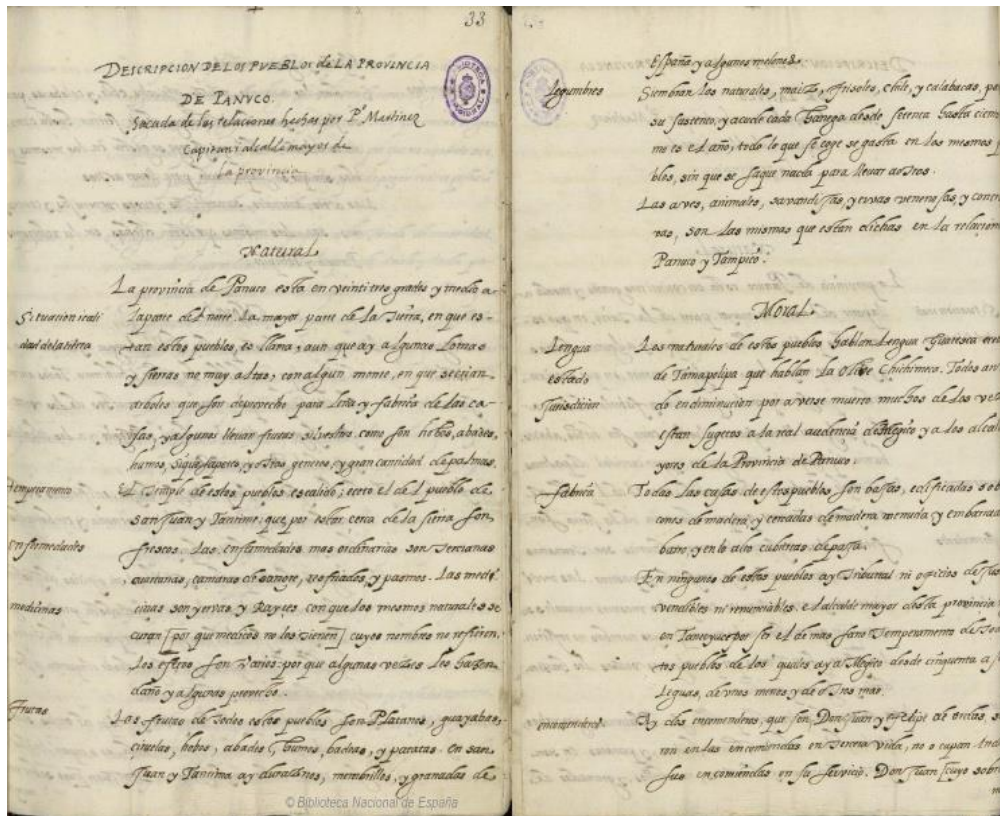 33
DESCRIPCION DE LOS PUEBLOS de LA PROVINCIA
DE PANUCO.
Sacada de las relaciones hechas por Pº Martinez
Capitan i alcalde mayor de
la provincia
Natural
Situacion i cali
dad de la tierra
La provincia de Panuco esta en veinti tres grados y medio a
la parte del norte. La mayor parte de la tierra, en que es-
tan estos pueblos, es llama, aun que ay algunas lomas
y sierras no muy altas, con algun monte, en que se crian
arboles que son de provecho para leña y fabrica de las ca-
sas, y algunos llevan frutas silvestres como son hobos, abades,
humos, sapotes, y otros generos, y gran cantidad de palmas.
Temperamento
El temple de estos pueblos es calido; eceto el del pueblo de
san Juan y Tantime; que por estar cerca de la sierra son
Enfermedades
frescos. Las enfermedades mas ordinarias son tercianas
, camaras de sangre, resfriados, y pasmos. Las medi
medicinas
cinas son yervas, y Rayzes con que los mesmos naturales se
curan [por que medicos no los tienen] cuyos nombres no refieren.
Los efetos son varios: por que algunas vezes les hazen
daño y algunas provecho.
Frutas
Las frutas de todos estos pueblos son Platanos, guayabas,
ciruelas, hobos, abades, humos, badeas, y patatas. En san
Juan y Tantima ay duraznos, membrillos, y granadas de
© Biblioteca Nacional de España
España y algunos melones.
Legumbres
Siembran los naturales, maiz, frisoles, chile, y calabacas, pa
su sustento, y acude cada hanega desde setenta hasta ciento
el año, todo lo que se coge se gasta en los mesmos p
blos, sin que se saque nada para llevar a otros.
Las aves, animales, savandijas, y ervas venenosas, y contra
vas, son las mismas que estan dichas en la relacion
Panuco y Tampico.
Moral.
Lengua
estado
Jurisdicion
Los naturales de estos pueblos hablan Lengua Guasteca
de Tamapelipa que hablan la Olive Chichimeca. Todos an
do en diminucion por averse muerto muchos de los vez
estan sugetos a la real audencia de Megico y a los alcal
yores de la Provincia de Panuco.
fabrica
Todas las casas de estos pueblos son bajas, edificadas sob
cones de madera, y cercadas de madera menuda y embarrad
barro, y en lo alto cubiertas de paja.
En ninguno de estos pueblos ay Tribunal ni oficios de Jus
vendibles ni renunciables. el alcalde mayor desta provincia
en Tantoyuca por ser el de mas sano temperamento de to
tos pueblos de los quales ay a Megico desde cinquenta a s
leguas, de unos menos y de otros mas.
encomenderos.
Ay dos encomenderos, que son, Don Juan y Felipe de
ron en las encomiendas en tercera vida, no ocupan Ind
sus encomiendas en su servicio. Don Juan [cuyo sobr